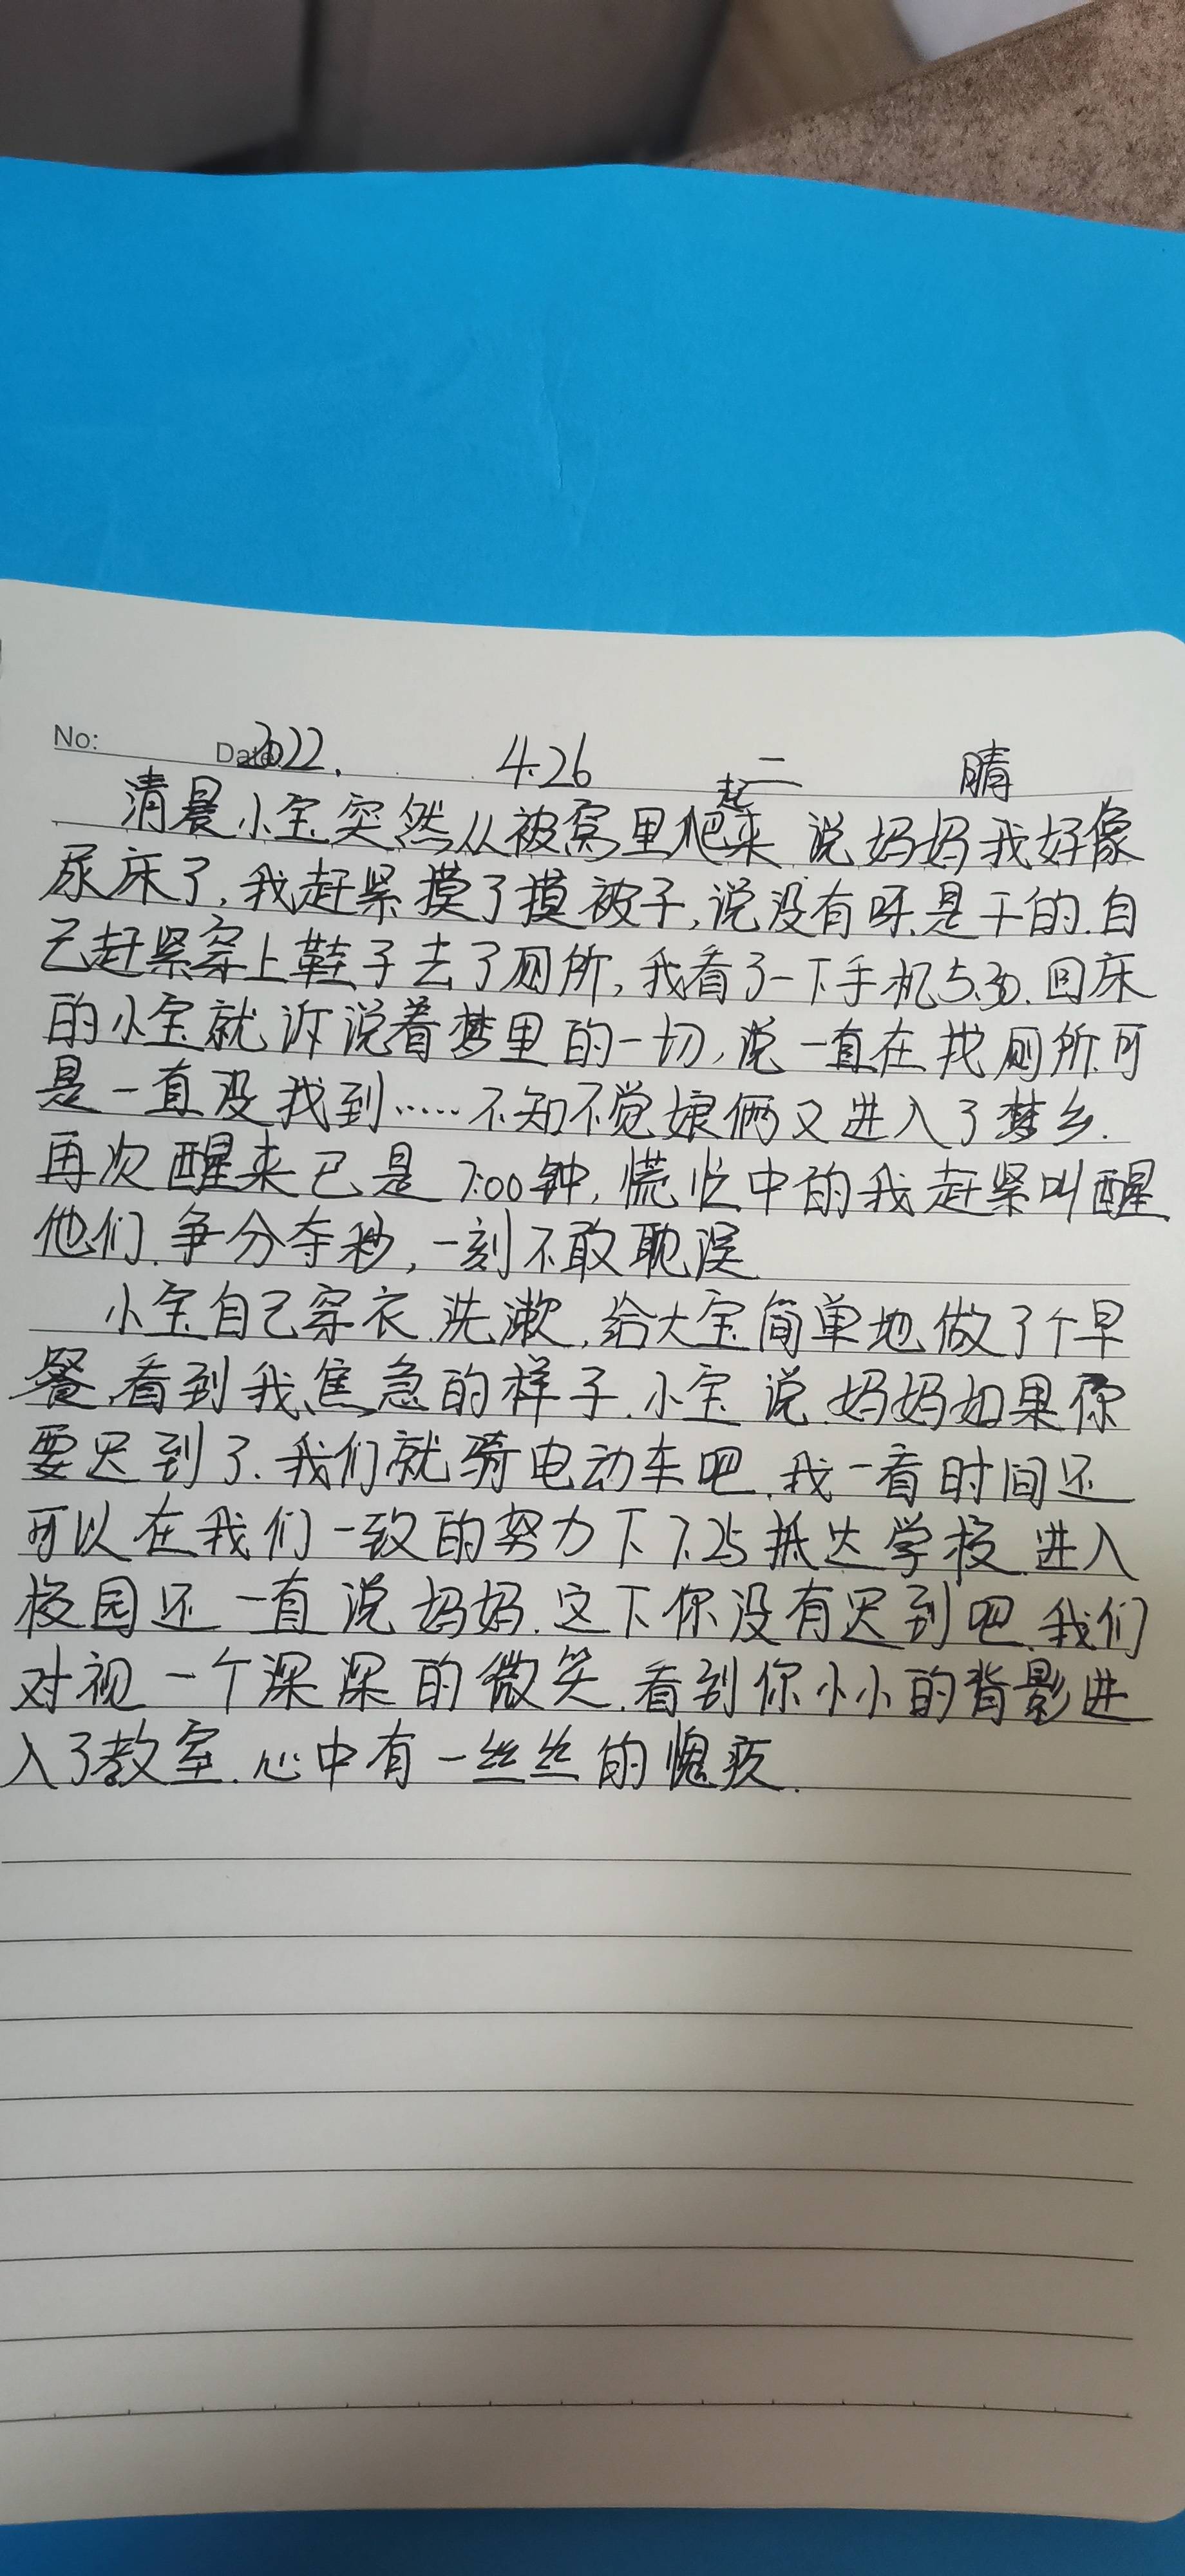 No: Date 2022. 4.26 二 晴
清晨,小宝突然从被窝里爬起来 说妈妈我好像
尿床了,我赶紧摸了摸被子,说没有呀.是干的.自
己赶紧穿上鞋子去了厕所,我看了一下手机5.30.回床
的小宝就诉说着梦里的一切,说一直在找厕所.可
是一直没找到……不知不觉娘俩又进入了梦乡.
再次醒来已是7:00钟,慌忙中的我赶紧叫醒
他们.争分夺秒,一刻不敢耽误
小宝自己穿衣.洗漱,给大宝简单地做了个早
餐,看到我焦急的样子.小宝说.妈妈如果你
要迟到了.我们就骑电动车吧.我一看时间还
可以在我们一致的努力下7.25抵达学校.进入
校园还一直说妈妈.这下你没有迟到吧.我们
对视一个深深的微笑.看到你小小的背影进
入了教室.心中有一丝丝的愧疚.